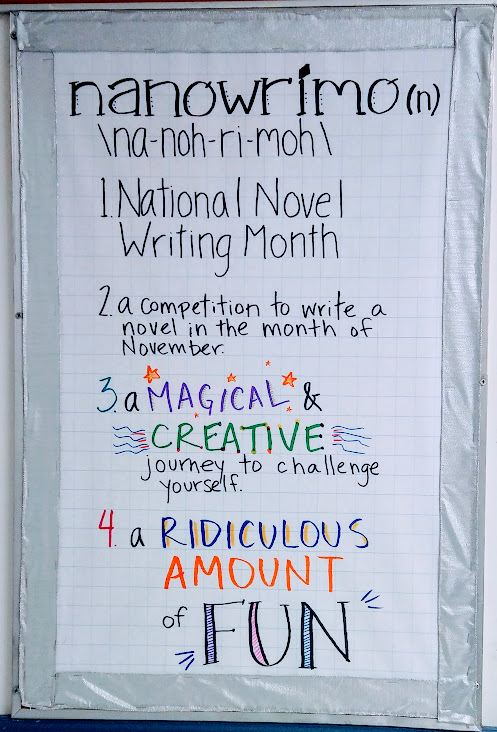 nanowrimo (n)
\na-noh-ri-moh\
1. National Novel
Writing Month
2. a competition to write a
novel in the month of
November.
3. a MAGICAL &
CREATIVE
journey to challenge
yourself.
4. a RIDICULOUS
AMOUNT
of FUN